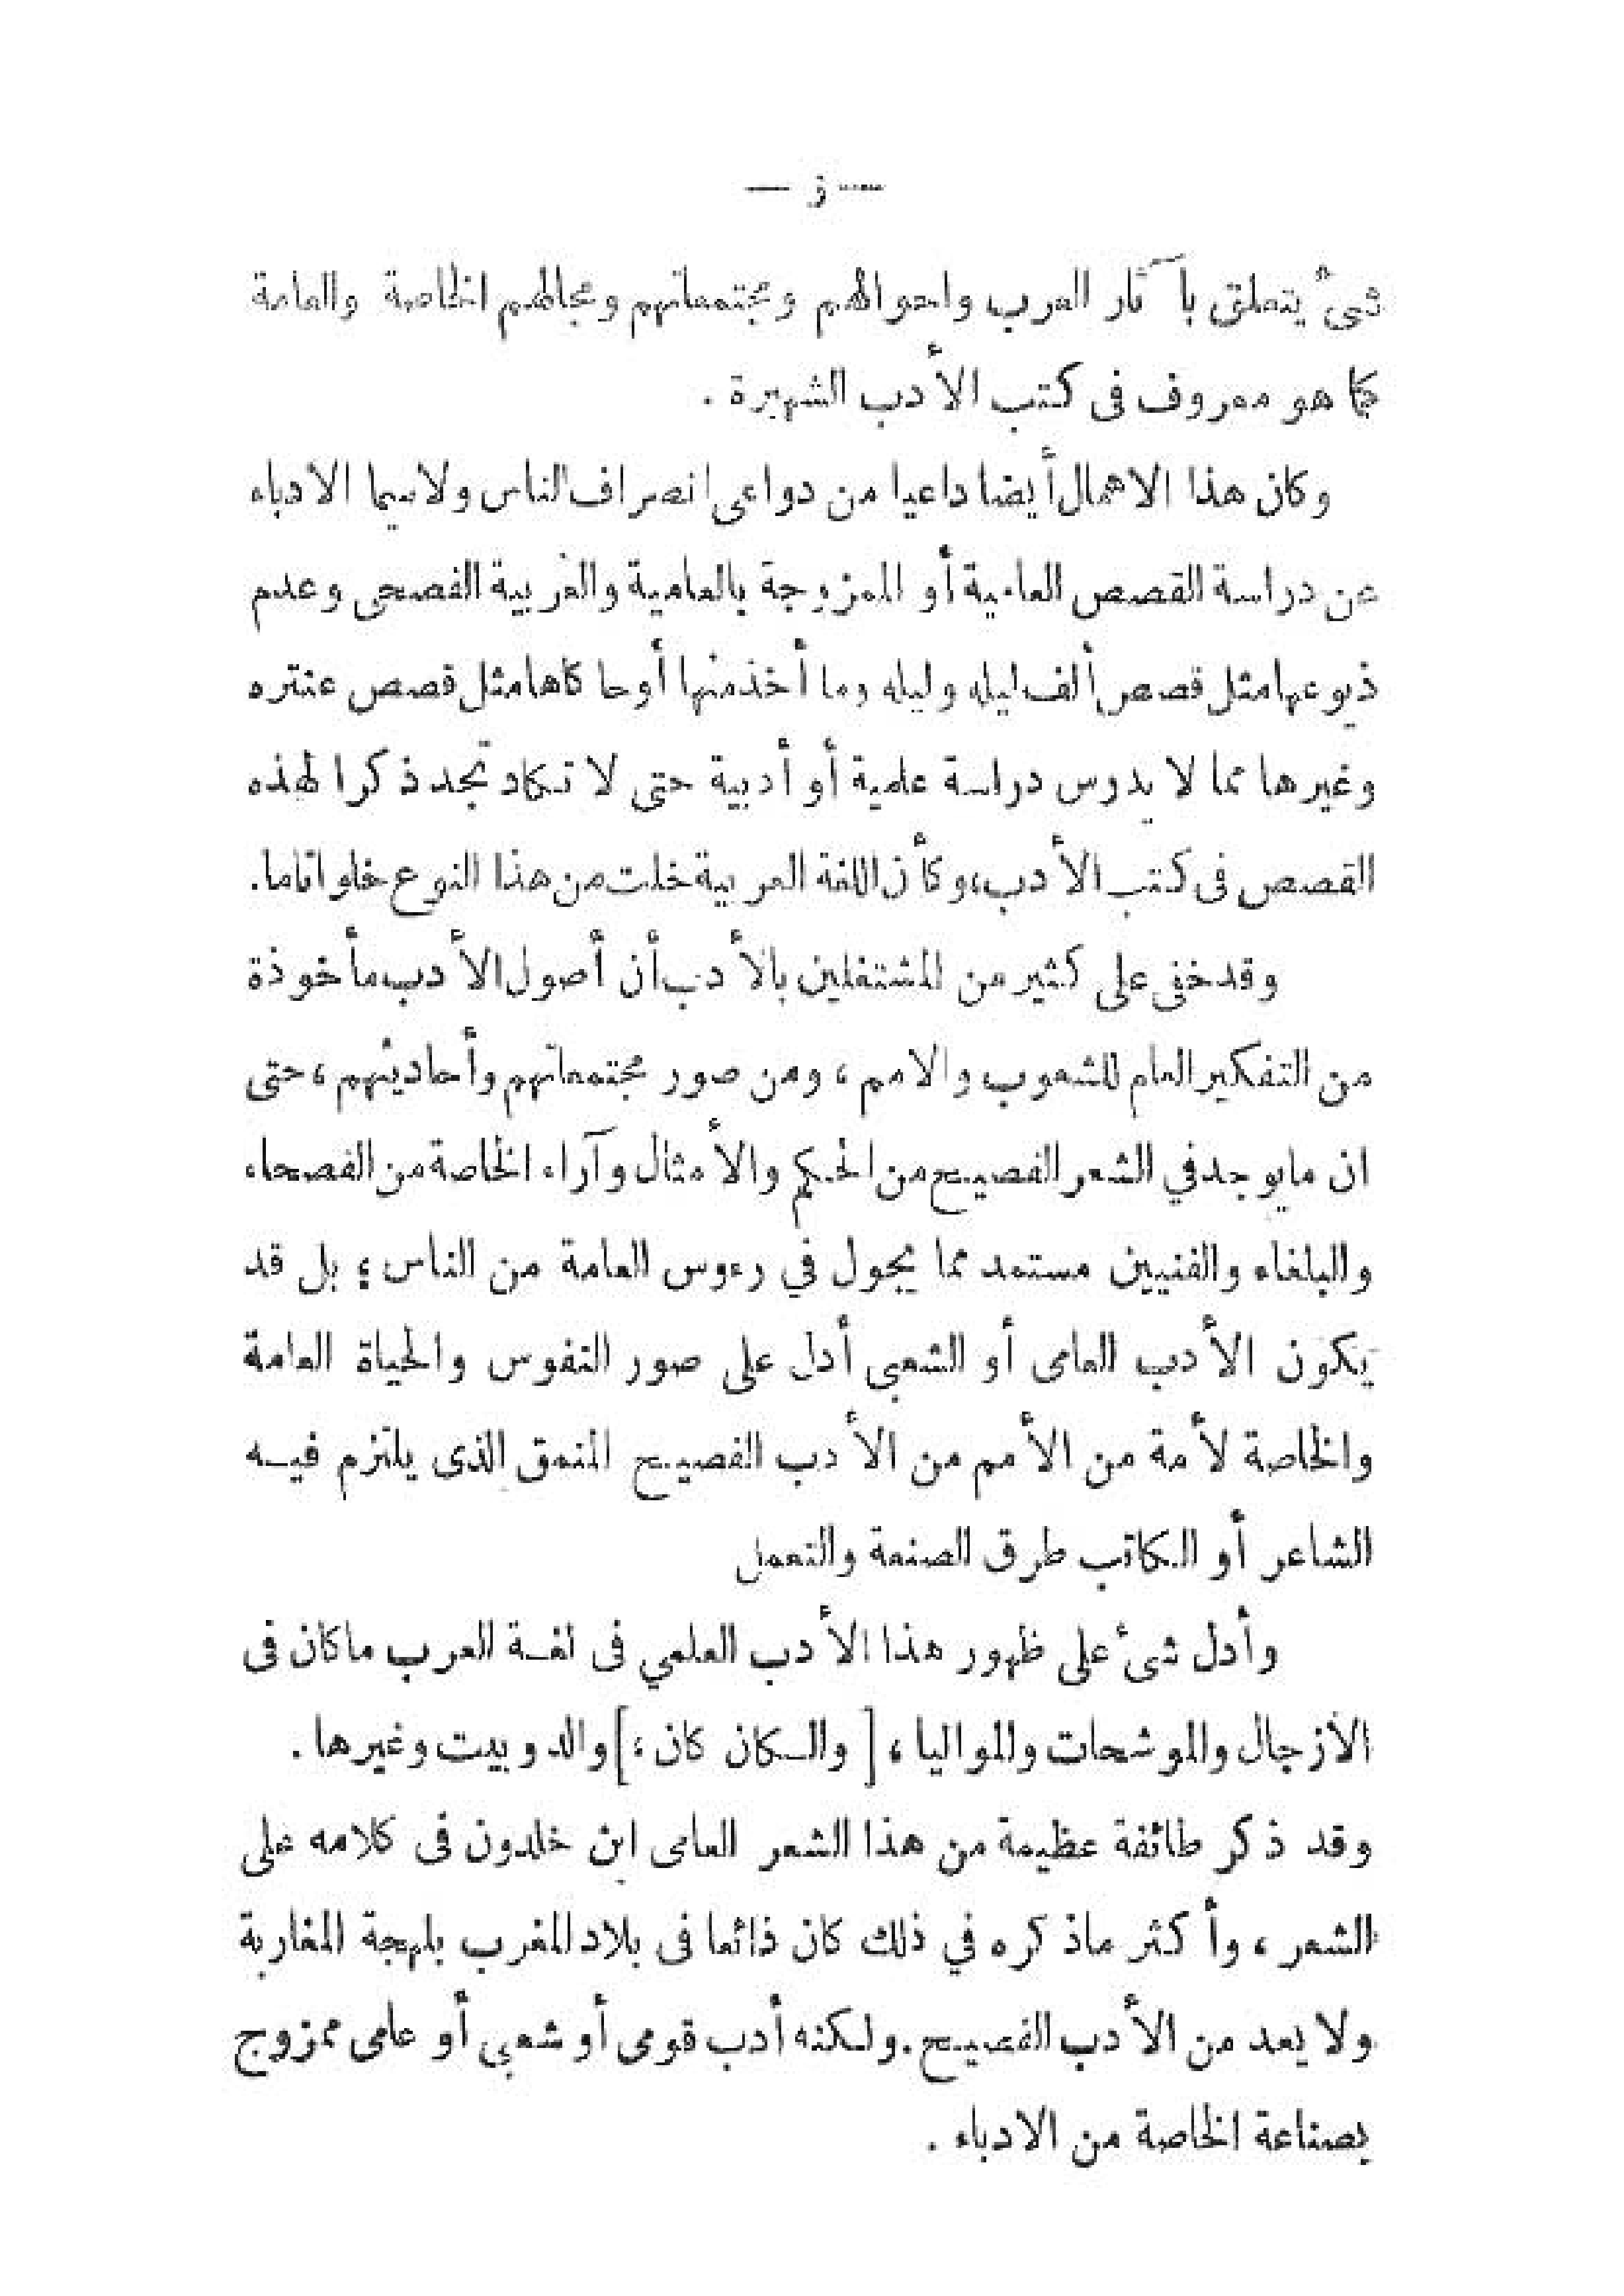 — ز —
شىء يتعلق بآثار العرب واحوالهم ومجتمعاتهم ومجالهم الخاصة والعامة
كما هو معروف فى كتب الأدب الشهيرة .
وكان هذا الاهمال أيضا داعيا من دواعى انصراف الناس ولاسيما الادباء
عن دراسة القصص العامية أو الممزوجة بالعامية والعربية الفصحى وعدم
ذيوعها مثل قصص ألف ليله وليله وما أخذ منها أو حاكاها مثل قصص عنتره
وغيرها مما لا يدرس دراسة علمية أو أدبية حتى لا تكاد تجد ذكرا لهذه
القصص فى كتب الأدب، وكأن اللغة العربية خلت من هذا النوع خلوا تاما.
وقد خفى على كثير من المشتغلين بالأدب أن أصول الأدب مأخوذة
من التفكير العام للشعوب والامم ، ومن صور مجتمعاتهم وأحاديثهم ، حتى
ان مايوجد في الشعر الفصيح من الحكم والأمثال وآراء الخاصة من الفصحاء
والبلغاء والفنيين مستمد مما يجول في رءوس العامة من الناس ؛ بل قد
يكون الأدب العامى أو الشعبى أدل على صور النفوس والحياة العامة
والخاصة لأمة من الأمم من الأدب الفصيح المنمق الذى يلتزم فيه
الشاعر أو الكاتب طرق الصنعة والتعمل
وأدل شىء على ظهور هذا الأدب العلمي فى لغة العرب ماكان فى
الأزجال والموشحات والمواليا ، [ والكان كان ؛] والدوبيت وغيرها .
وقد ذكر طائفة عظيمة من هذا الشعر العامى ابن خلدون فى كلامه على
الشعر ، وأكثر ماذكره في ذلك كان ذائعا فى بلاد المغرب بلهجة المغاربة
ولا يعد من الأدب الفصيح . ولكنه أدب قومى أو شعبي أو عامى ممزوج
بصناعة الخاصة من الادباء .